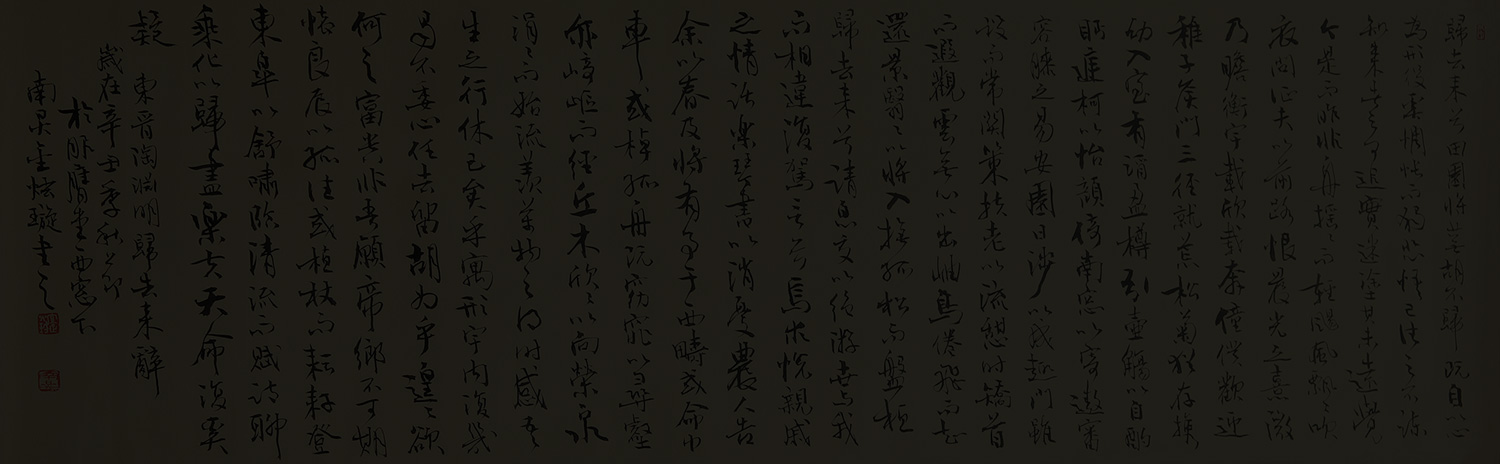 歸去來兮田園將蕪胡不歸既自以心
為形役奚惆悵而獨悲悟已往之不諫
知來者之可追實迷塗其未遠覺
今是而昨非舟搖而輕颺風飄〻吹
衣問征夫以前路恨晨光之熹微
乃瞻衡宇載欣載奔僮僕歡迎
稚子候門三徑就荒松菊猶存携
幼入室有酒盈樽引壺觴以自酌
眄庭柯以怡顔倚南窓以寄傲審
容膝之易安園日涉以成趣門雖
設而常關策扶老以流憩時矯首
而遐觀雲無心以出岫鳥倦飛而知
還景翳〻以將入撫孤松而盤桓
歸去來兮請息交以絶游世與我
而相違復駕言兮焉求悅親戚
之情話樂琴書以消憂農人告
余以春及將有事于西疇或命巾
車或棹孤舟既窈窕以尋壑
亦崎嶇而經丘木欣〻以向榮泉
涓〻而始流羨萬物之得時感吾
生之行休已矣乎寓形宇內復幾
曷不委心任去留胡為乎遑〻欲
何之富貴非吾願帝鄉不可期
懷良辰以孤往或植杖而耘耔登
東皐以舒嘯臨清流而賦詩聊
乘化以歸盡樂夫天命復奚
疑 東晋陶淵明歸去來辭
歲在辛丑季秋之節
於 堂西窓下
南 金炫璇書之